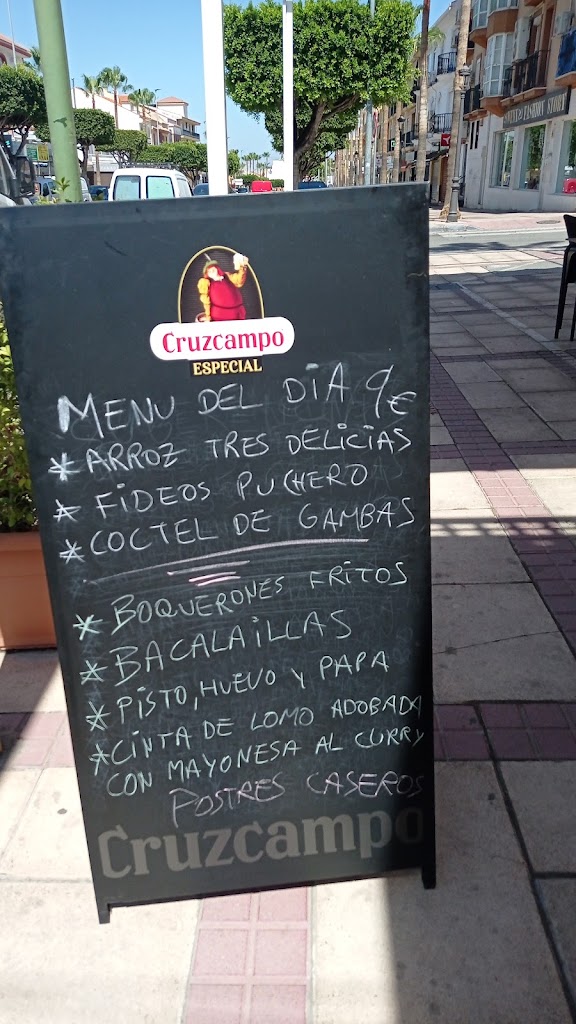 Cruzcampo
ESPECIAL
MENU DEL DÍA 9€
* ARROZ TRES DELICIAS
* FIDEOS PUCHERO
* COCTEL DE GAMBAS
* BOQUERONES FRITOS
* BACALAILLAS
* PISTO, HUEVO Y PAPA
* CINTA DE LOMO ADOBADA
CON MAYONESA AL CURRY
POSTRES CASEROS
Cruzcampo